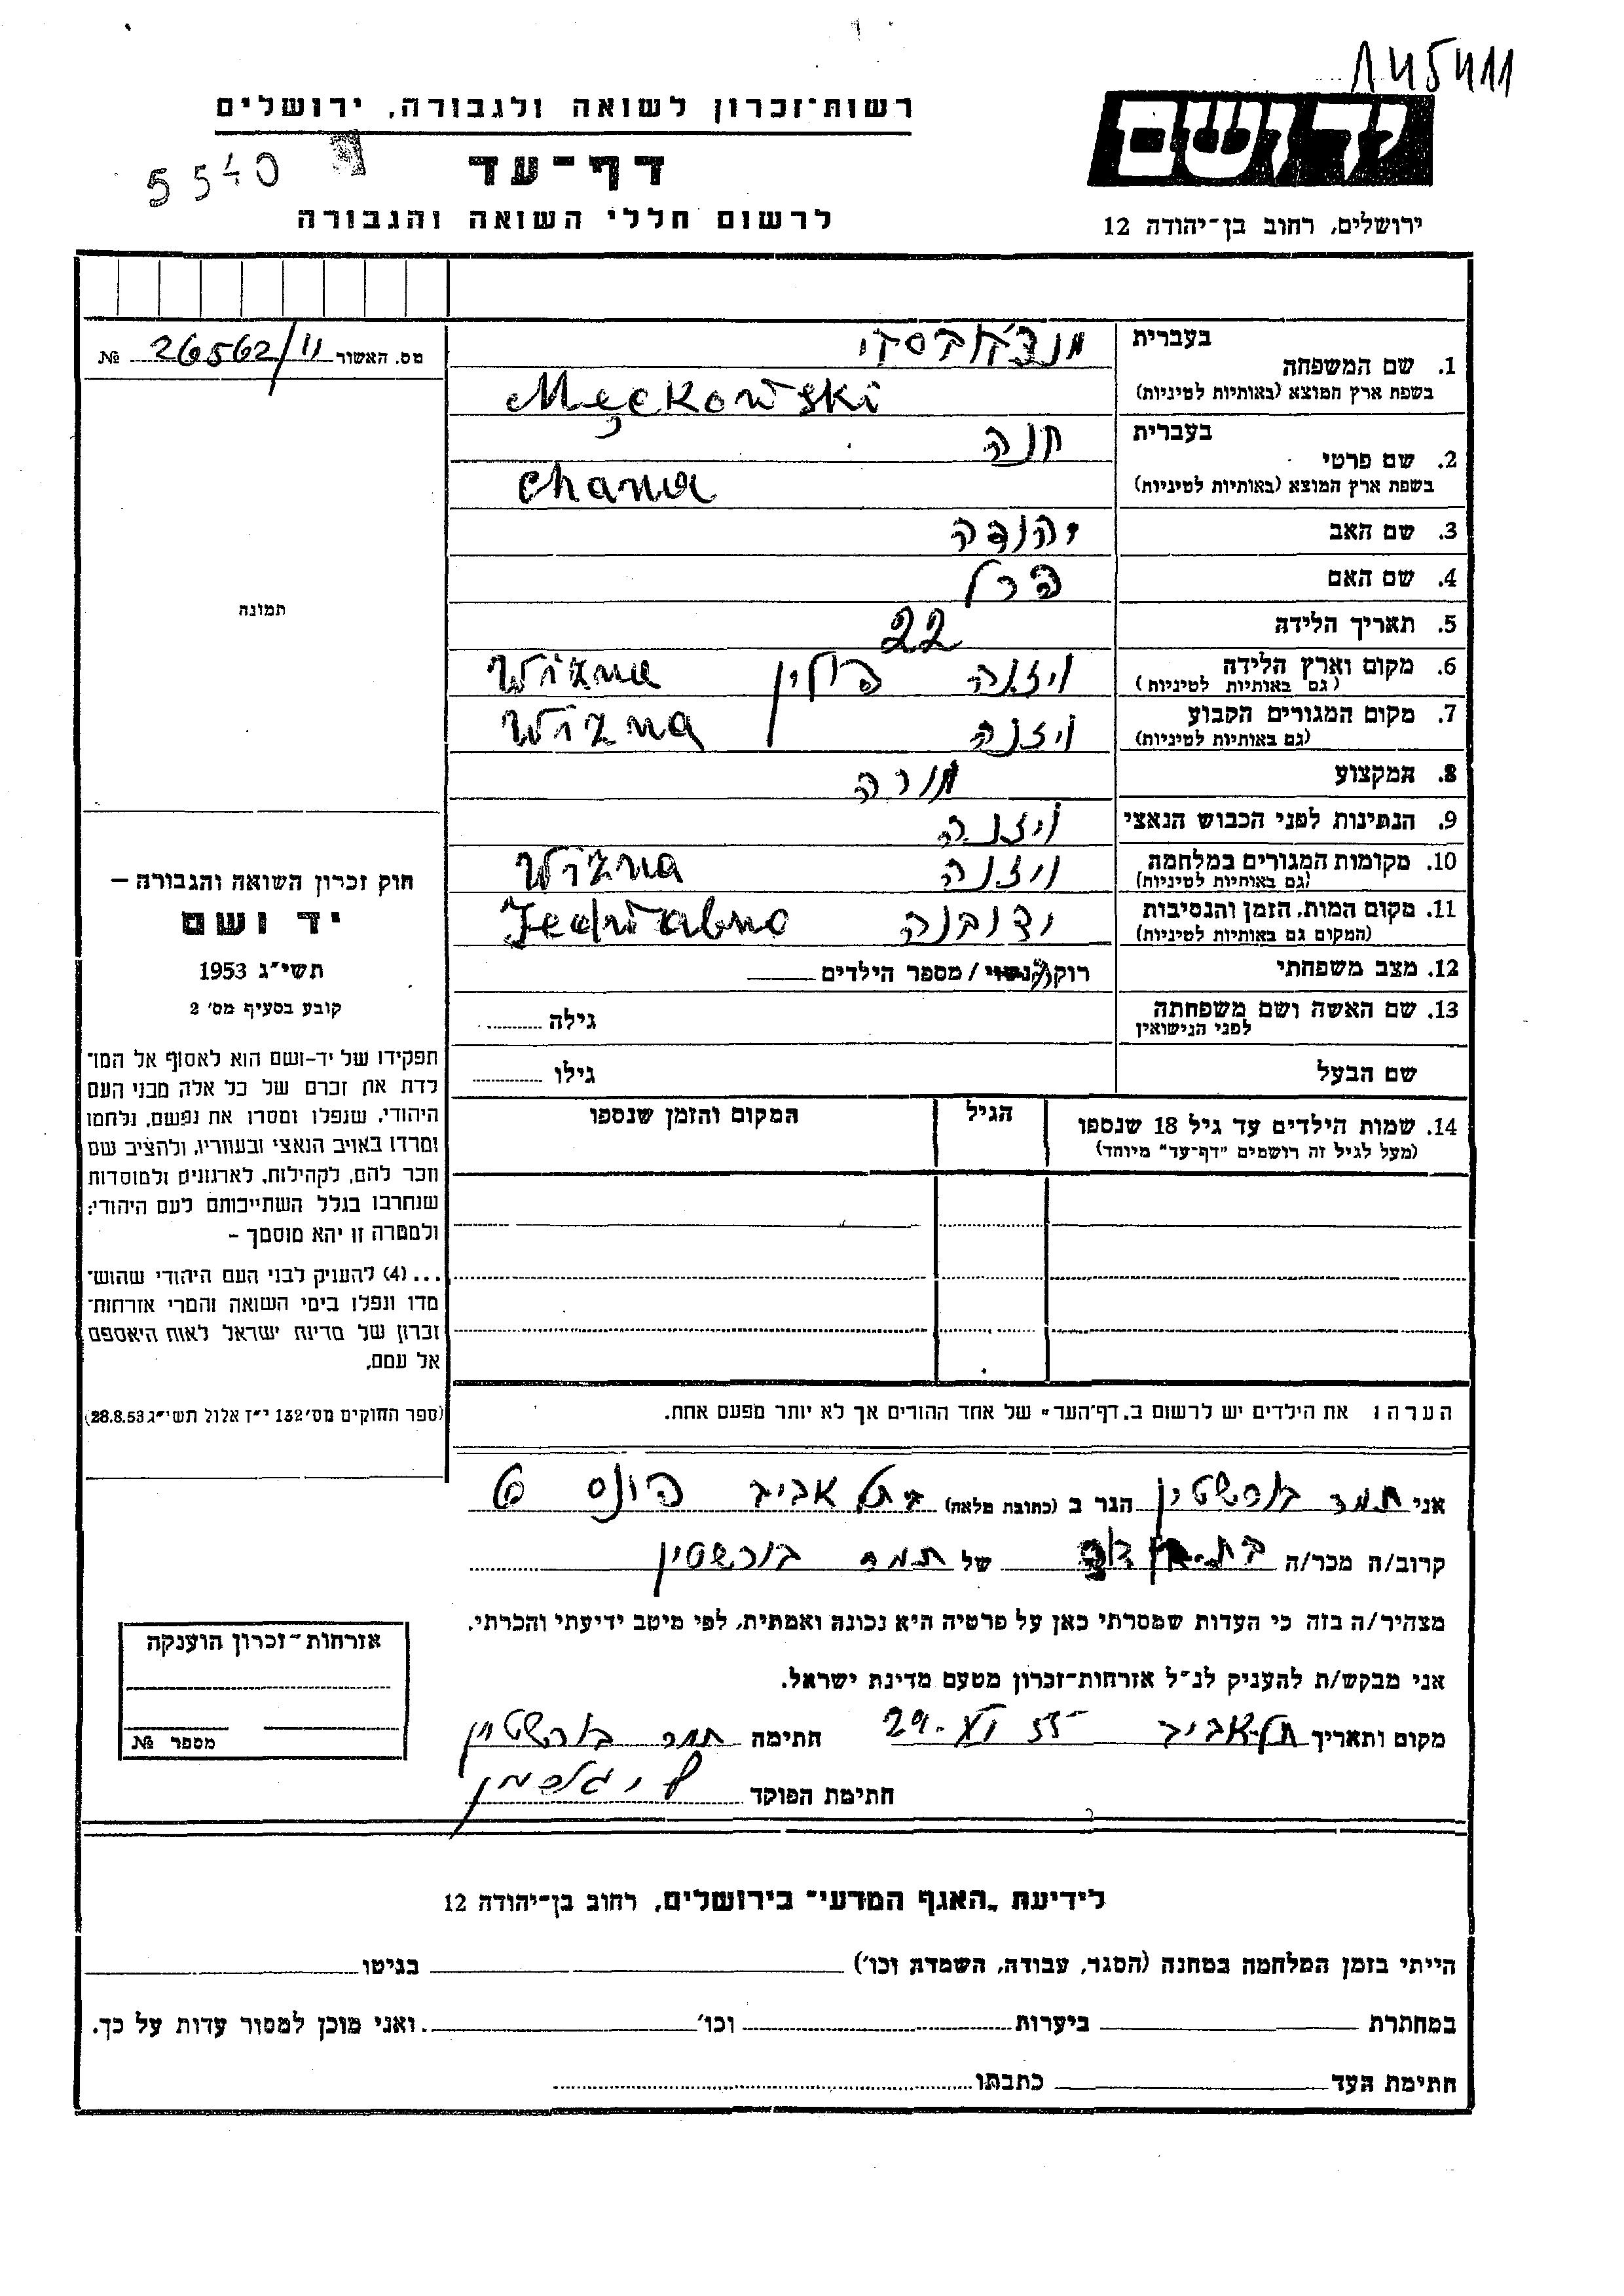 145411
רשות־זכרון לשואה ולגבורה, ירושלים
יד ושם
5540
דף־עד
לרשום חללי השואה והגבורה
ירושלים, רחוב בן־יהודה 12
מס. האשור 26562/11 №
בעברית
1. שם המשפחה
בשפת ארץ המוצא (באותיות לטיניות)
Męckowski
בעברית חנה
2. שם פרטי
בשפת ארץ המוצא (באותיות לטיניות) Chana
3. שם האב יהודה
4. שם האם פרל
5. תאריך הלידה 22
6. מקום וארץ הלידה ויזנה פולין Wizna
(גם באותיות לטיניות)
7. מקום המגורים הקבוע ויזנה Wizna
(גם באותיות לטיניות)
8. המקצוע מורה
9. הנתינות לפני הכבוש הנאצי ויזנה
10. מקומות המגורים במלחמה ויזנה Wizna
(גם באותיות לטיניות)
11. מקום המות, הזמן והנסיבות ידובנה Jedwabno
(המקום גם באותיות לטיניות)
12. מצב משפחתי רוק/נשוי / מספר הילדים
13. שם האשה ושם משפחתה גילה
לפני הנישואין
שם הבעל גילו
14. שמות הילדים עד גיל 18 שנספו הגיל המקום והזמן שנספו
(מעל לגיל זה רושמים "דף־עד" מיוחד)
תמונה
חוק זכרון השואה והגבורה –
יד ושם
תשי"ג 1953
קובע בסעיף מס' 2
תפקידו של יד-ושם הוא לאסוף אל המו־
לדת את זכרם של כל אלה מבני העם
היהודי, שנפלו ומסרו את נפשם, נלחמו
ומרדו באויב הנאצי ובעוזריו, ולהציב שם
וזכר להם, לקהילות, לארגונים ולמוסדות
שנחרבו בגלל השתייכותם לעם היהודי;
ולמטרה זו יהא מוסמך –
...(4) להעניק לבני העם היהודי שהוש־
מדו ונפלו בימי השואה והמרי אזרחות־
זכרון של מדינת ישראל לאות היאספם
אל עמם.
(ספר החוקים מס' 132 י"ז אלול תשי"ג 28.8.53)
הערה: את הילדים יש לרשום ב„דף־העד" של אחד ההורים אך לא יותר מפעם אחת.
אני תמר בורשטין הגר ב (כתובת מלאה) בתל אביב
קרוב/ה מכר/ה בת של תמר בורשטין
מצהיר/ה בזה כי העדות שמסרתי כאן על פרטיה היא נכונה ואמתית, לפי מיטב ידיעתי והכרתי.
אני מבקש/ת להעניק לנ"ל אזרחות־זכרון מטעם מדינת ישראל.
מקום ותאריך תל-אביב 29. VI 55 חתימה תמר בורשטין
חתימת הפוקד
אזרחות־זכרון הוענקה
מספר №
לידיעת „האגף המדעי" בירושלים, רחוב בן־יהודה 12
הייתי בזמן המלחמה במחנה (הסגר, עבודה, השמדה וכו') בגיטו
במחתרת ביערות וכו' ואני מוכן למסור עדות על כך.
חתימת העד כתבתו